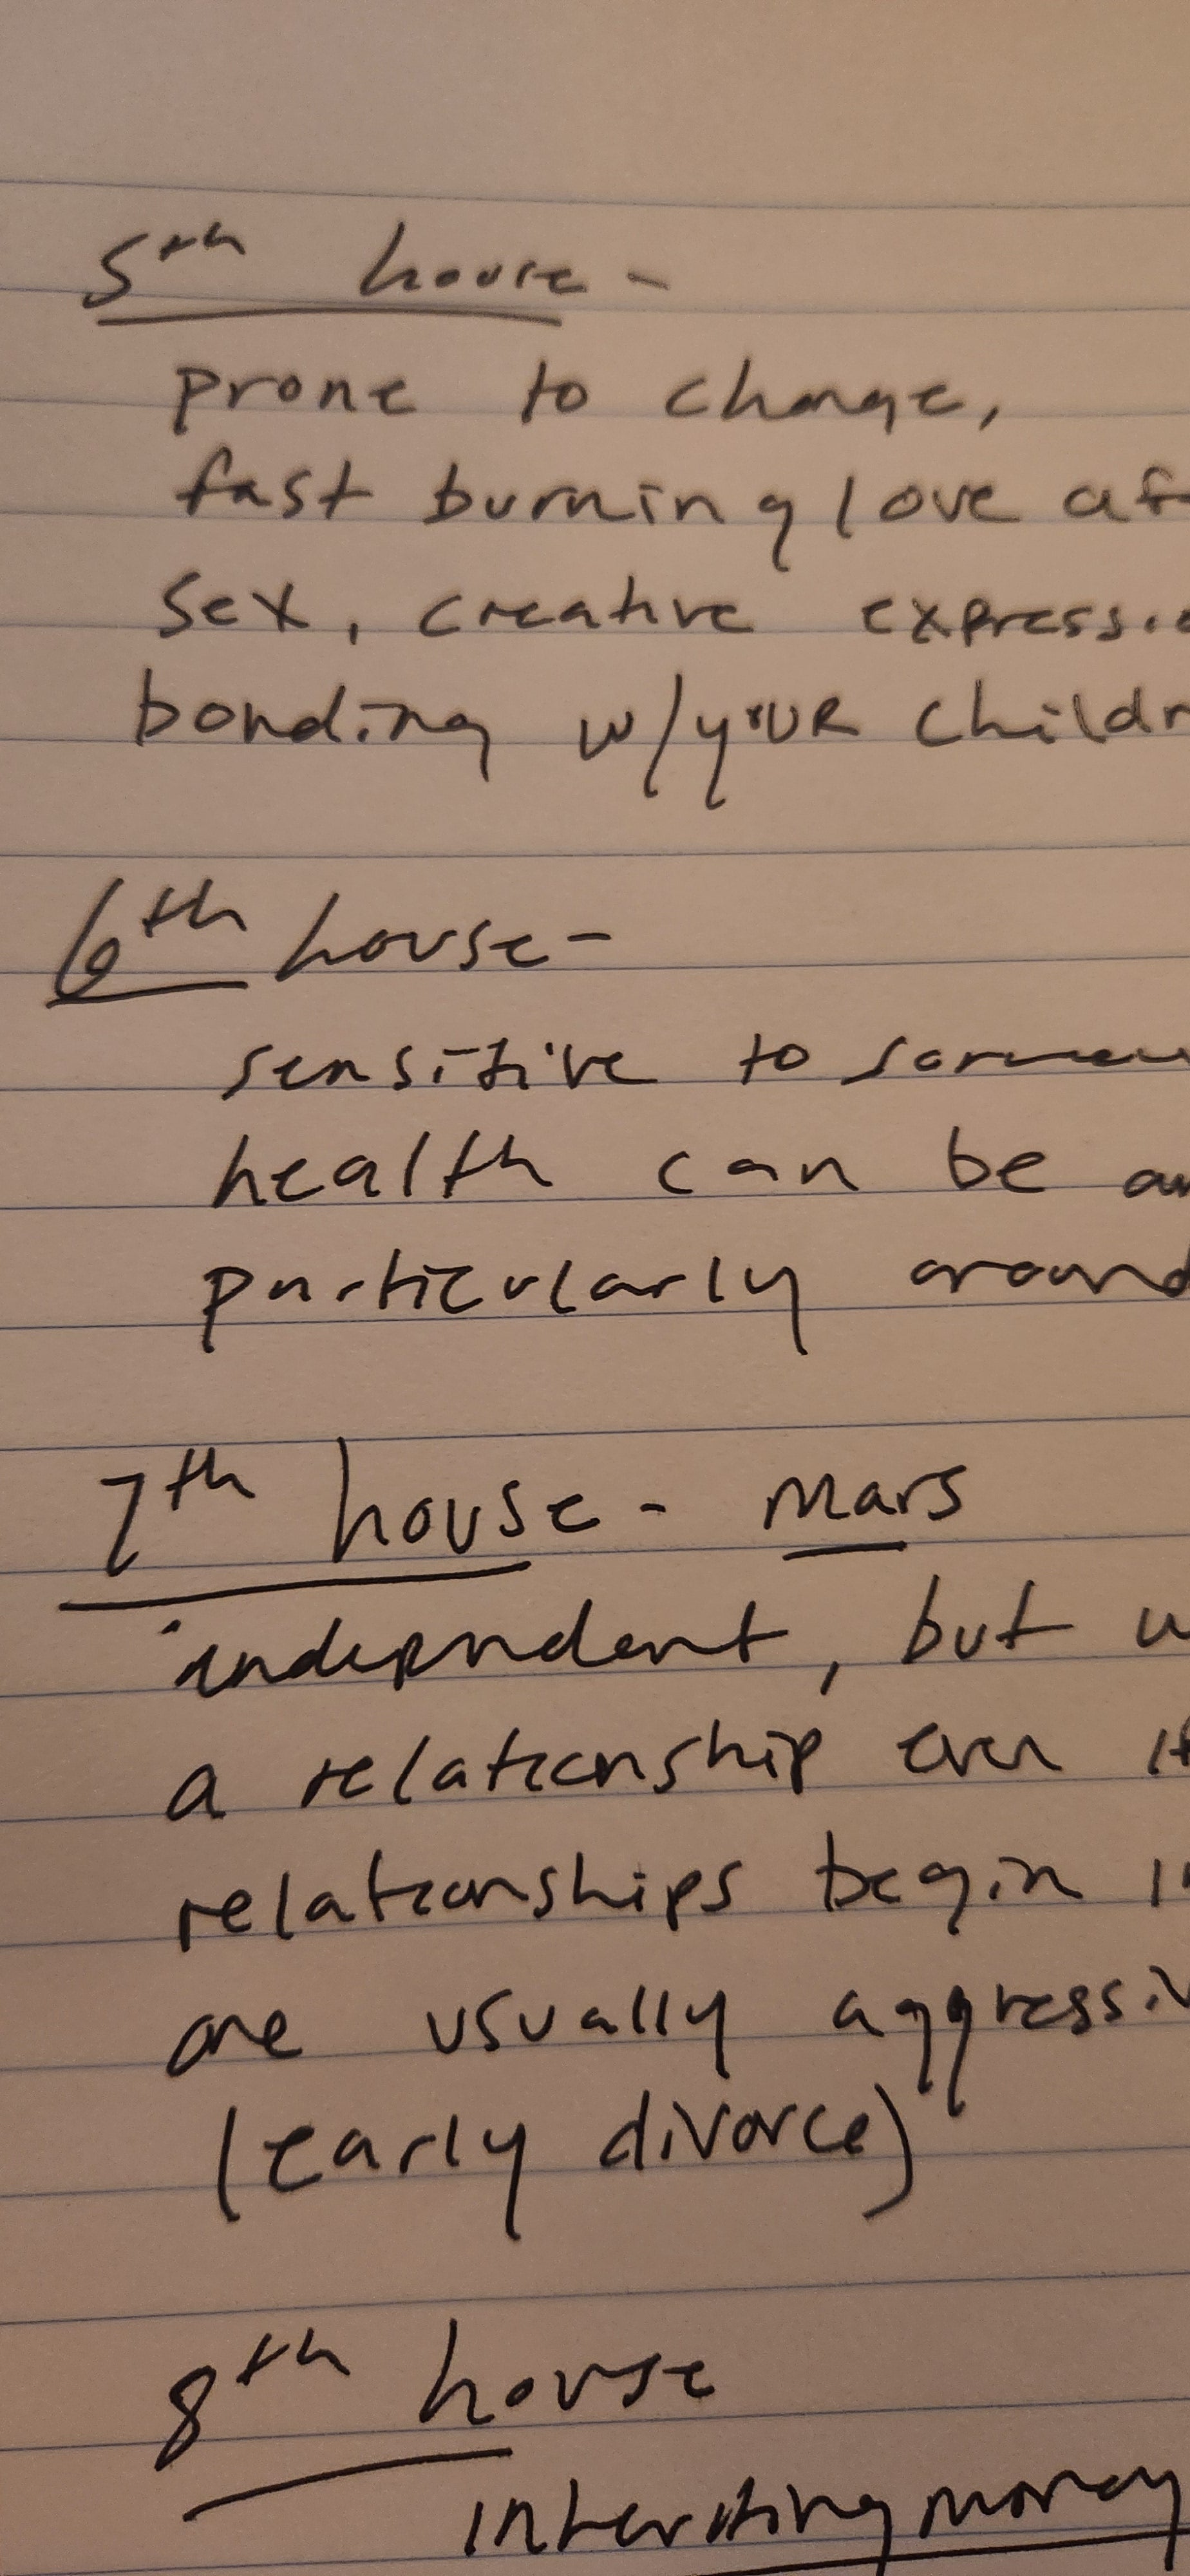 5th house -
prone to change,
fast burning love af
sex, creative expressio
bonding w/your childr
6th house -
sensitive to
health can be
particularly around
7th house - Mars
independent, but w
a relationship even if
relationships begin in
are usually aggressiv
(early divorce)
8th house
inheriting money